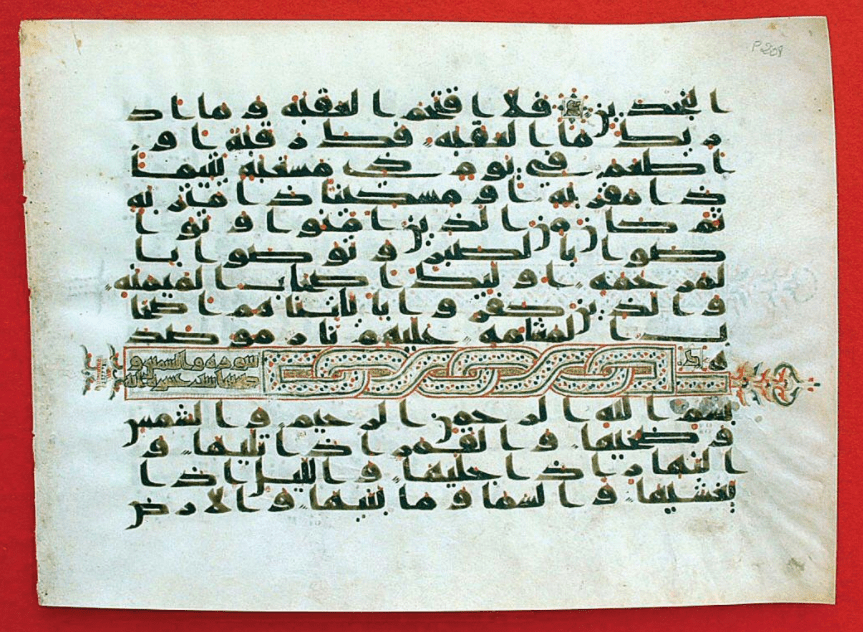 P.209
النجدين فلا اقتحم العقبه وما اد
ريك ما العقبه فك رقبه او
اطعم في يوم ذي مسغبه يتيما
ذا مقربه او مسكينا ذا متربه
ثم كان من الذين امنوا وتوا
صوا بالصبر وتوصوا با
لمرحمه اوليك اصحاب الميمنه
والذين كفروا باياتنا هم اصحا
ب المشمه عليهم نار موصد
ه
سوره والشمس و
بسم الله الرحمن الرحيم والشمس
وضحيها والقمر اذا تليها و
النهار اذا جليها والليل اذا
يغشيها والسما وما بنيها والارض